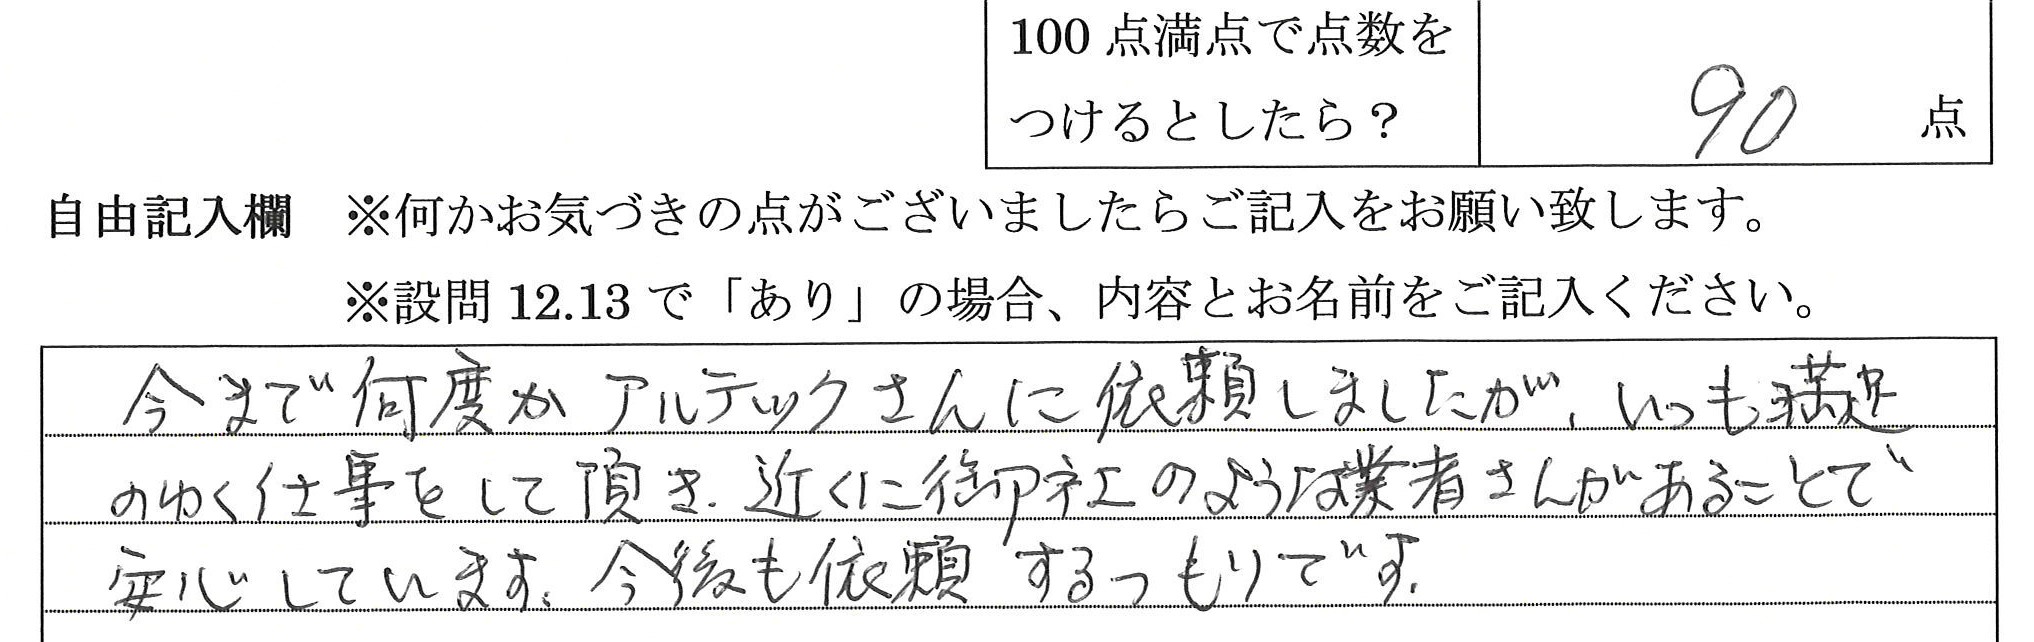 100 点満点で点数を
つけるとしたら？
90 点
自由記入欄 ※何かお気づきの点がございましたらご記入をお願い致します。
※設問 12.13 で「あり」の場合、内容とお名前をご記入ください。
今まで何度かアルテックさんに依頼しましたが、いつも満足
のゆく仕事をして頂き、近くに御社のような業者さんがあることで
安心しています。今後も依頼するつもりです。